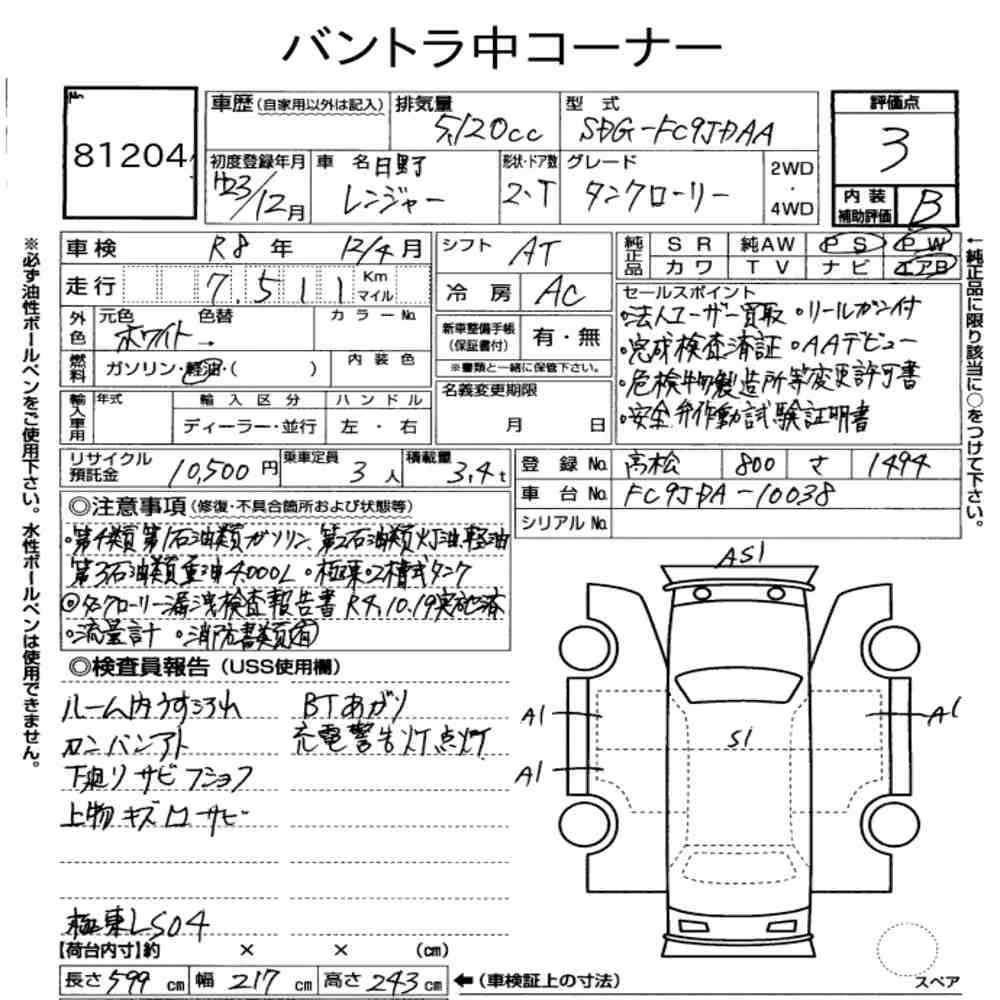 バントラ中コーナー
No. 81204
車歴(自家用以外は記入) 排気量 5,120cc 型式 SDG-FC9JDAA
評価点 3
初度登録年月 H23/12月 車名 日野 レンジャー 形状・ドア数 2・T グレード タンクローリー 2WD・4WD
内装補助評価 B
車検 R8年 12/4月
シフト AT
純正品 SR 純AW PS PW
カワ TV ナビ エアB
走行 7,511 Km マイル
冷房 AC
外色 元色 ホワイト → 色替 カラーNo.
新車整備手帳(保証書付) 有・無
※書類と一緒に保管下さい。
燃料 ガソリン・軽油・( ) 内装色
名義変更期限 月 日
輸入車用 年式 輸入区分 ハンドル
ディーラー・並行 左・右
セールスポイント
・法人ユーザー買取 ・リールガン付
・完成検査済証 ・AAデビュー
・危険物製造所等変更許可書
・安全弁作動試験証明書
リサイクル預託金 10,500円 乗車定員 3人 積載量 3,4t
登録No. 高松 800 さ 1494
車台No. FC9JDA-10038
シリアルNo.
◎注意事項(修復・不具合箇所および状態等)
・第4類第1石油類ガソリン、第2石油類灯油、軽油
第3石油類重油4,000L ・極東 ・2槽式タンク
◎タンクローリー漏洩検査報告書 R4.10.19実施済
・流量計 ・消防書類有
◎検査員報告(USS使用欄)
ルーム内うすヨゴレ BTあがり
カンバンアト 充電警告灯点灯
下廻りサビフショク
上物キズ凹サビ
極東LS04
【荷台内寸】約 × × (cm)
長さ599cm 幅217cm 高さ243cm ←(車検証上の寸法)
AS1
A1
A1
S1
A1
スペア
※必ず油性ボールペンをご使用下さい。水性ボールペンは使用できません。
←純正品に限り該当に○をつけて下さい。